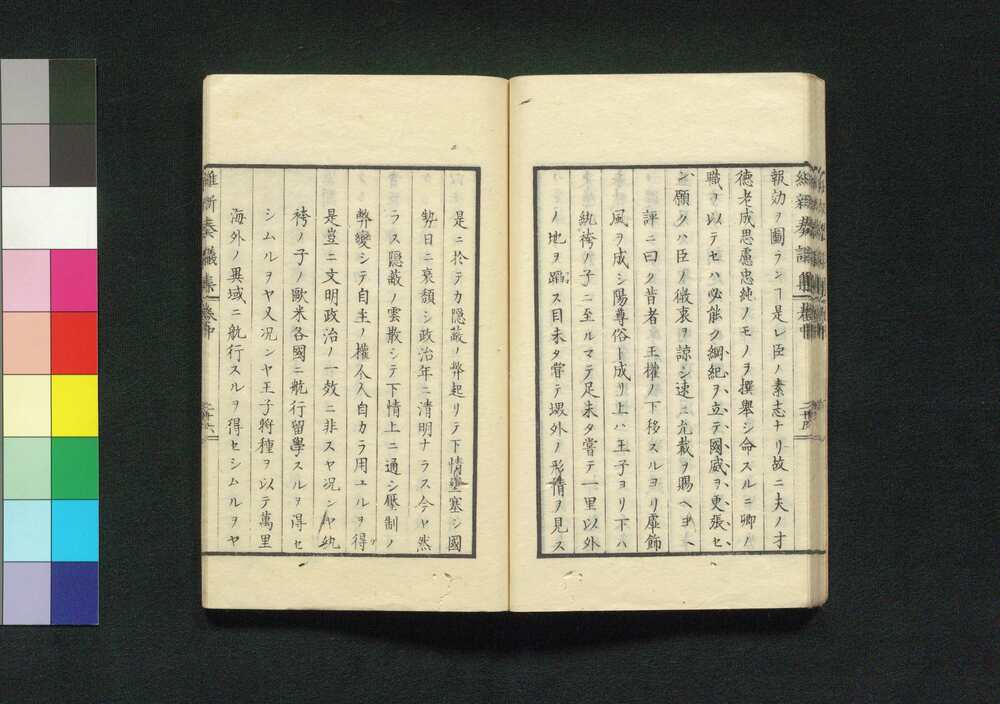 維新奏議集 卷中
報効ヲ圖ランヿ是レ臣ノ素志ナリ故ニ夫ノ才
徳老成思慮忠純ノモノヲ撰舉シ命スルニ卿ノ
職ヲ以テセハ必能ク綱紀ヲ立テ國威ヲ更張セ
ン願クハ臣ノ微衷ヲ諒シ速ニ允裁ヲ賜ヘヨ
評ニ曰ク昔者王權ノ下移スルヨリ虛飾
風ヲ成シ陽尊俗ト成リ上ハ王子ヨリ下ハ
紈袴ノ子ニ至ルマテ足未タ嘗テ一里以外
ノ地ヲ蹈ス目未タ嘗テ環外ノ形情ヲ見ス
是ニ於テカ隱蔽ノ弊起リテ下情壅塞シ國
勢日ニ衰頽シ政治年ニ清明ナラス今ヤ然
ラス隱蔽ノ雲散シテ下情上ニ通シ壓制ノ
弊變シテ自主ノ權人人自カラ用ユルヲ得
是豈ニ文明政治ノ一效ニ非スヤ况ンヤ紈
袴ノ子ノ歐米各國ニ航行留學スルヲ得セ
シムルヲヤ又况ンヤ王子將種ヲ以テ萬里
海外ノ異域ニ航行スルヲ得セシムルヲヤ
維新奏議集 卷中